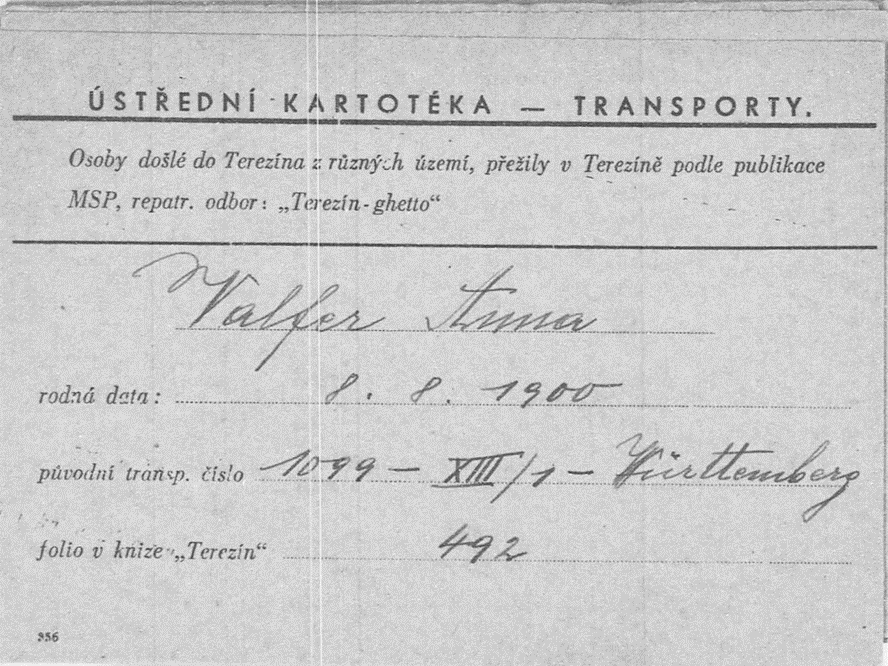 ÚSTŘEDNÍ KARTOTÉKA — TRANSPORTY.
Osoby došlé do Terezína z různých území, přežily v Terezíně podle publikace
MSP, repatr. odbor: „Terezín-ghetto“
Valfer Anna
rodná data: 8. 8. 1900
původní transp. číslo 1099 — XIII/1 — Württemberg
folio v knize „Terezín“ 492
956